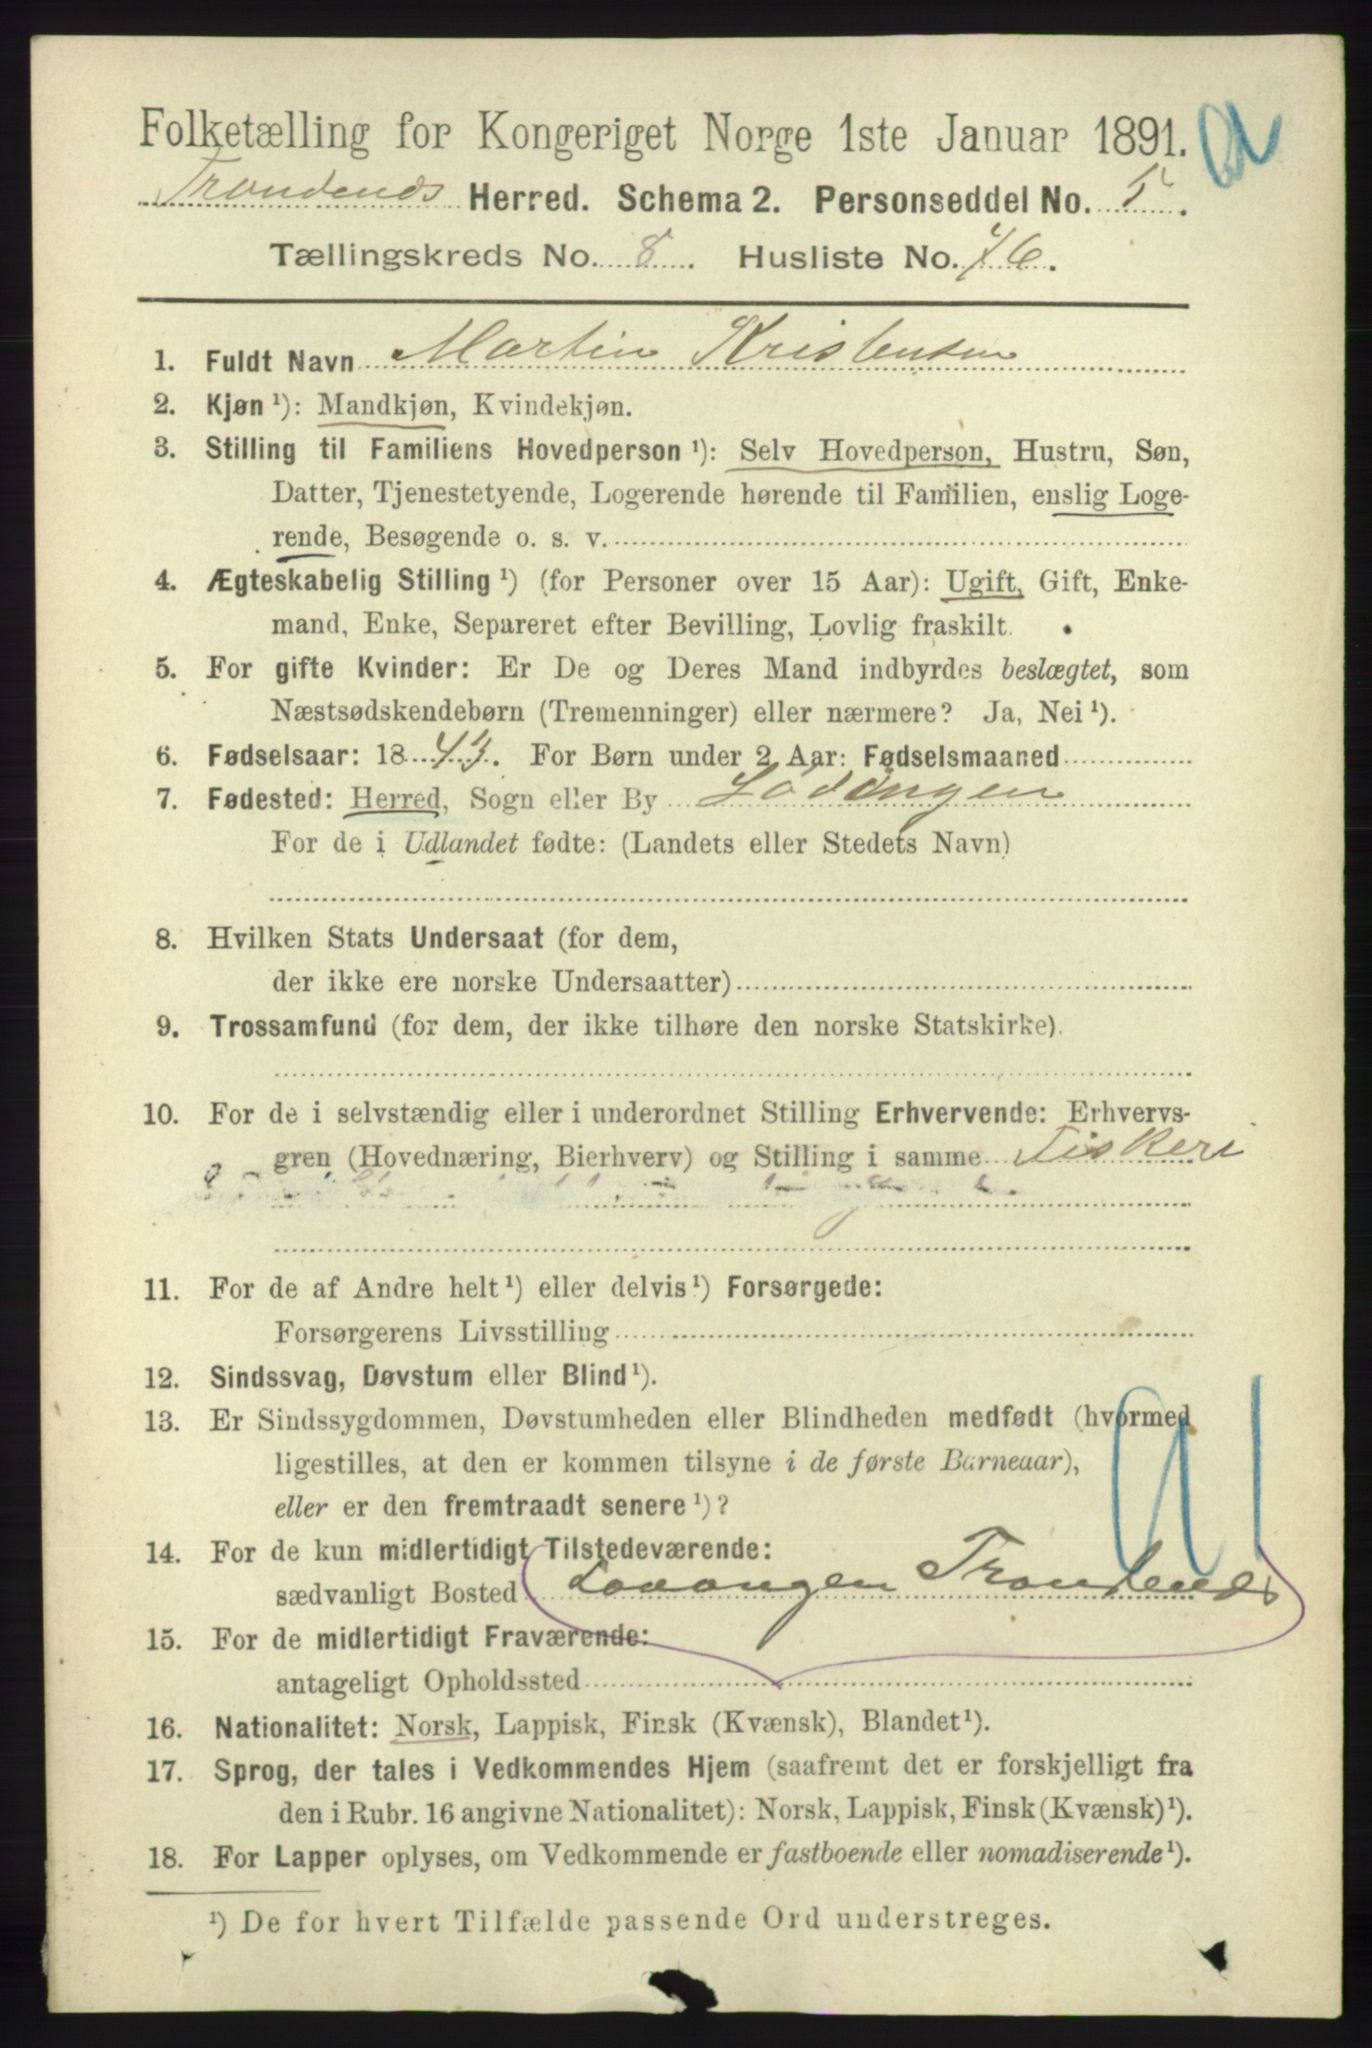 Folketælling for Kongeriget Norge 1ste Januar 1891.
Trondenes Herred. Schema 2. Personseddel No. 5.
Tællingskreds No. 8. Husliste No. 46.
1. Fuldt Navn Martin Kristensen
2. Kjøn ¹): Mandkjøn, Kvindekjøn.
3. Stilling til Familiens Hovedperson ¹): Selv Hovedperson, Hustru, Søn,
Datter, Tjenestetyende, Logerende hørende til Familien, enslig Loge-
rende, Besøgende o. s. v.
4. Ægteskabelig Stilling ¹) (for Personer over 15 Aar): Ugift, Gift, Enke-
mand, Enke, Separeret efter Bevilling, Lovlig fraskilt.
5. For gifte Kvinder: Er De og Deres Mand indbyrdes beslægtet, som
Næstsødskendebørn (Tremenninger) eller nærmere? Ja, Nei ¹).
6. Fødselsaar: 1843. For Børn under 2 Aar: Fødselsmaaned
7. Fødested: Herred, Sogn eller By Lødingen
For de i Udlandet fødte: (Landets eller Stedets Navn)
8. Hvilken Stats Undersaat (for dem,
der ikke ere norske Undersaatter)
9. Trossamfund (for dem, der ikke tilhøre den norske Statskirke).
10. For de i selvstændig eller i underordnet Stilling Erhvervende: Erhvervs-
gren (Hovednæring, Bierhverv) og Stilling i samme Fiskeri
11. For de af Andre helt ¹) eller delvis ¹) Forsørgede:
Forsørgerens Livsstilling
12. Sindssvag, Døvstum eller Blind ¹).
13. Er Sindssygdommen, Døvstumheden eller Blindheden medfødt (hvormed
ligestilles, at den er kommen tilsyne i de første Barneaar),
eller er den fremtraadt senere ¹)?
14. For de kun midlertidigt Tilstedeværende:
sædvanligt Bosted Lavangen Trondenes
15. For de midlertidigt Fraværende:
antageligt Opholdssted
16. Nationalitet: Norsk, Lappisk, Finsk (Kvænsk), Blandet ¹).
17. Sprog, der tales i Vedkommendes Hjem (saafremt det er forskjelligt fra
den i Rubr. 16 angivne Nationalitet): Norsk, Lappisk, Finsk (Kvænsk) ¹).
18. For Lapper oplyses, om Vedkommende er fastboende eller nomadiserende ¹).
¹) De for hvert Tilfælde passende Ord understreges.